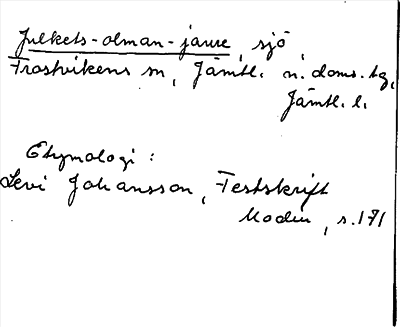 Julkets-olman-jaure, sjö,
Frostvikens sn, Jämtl. n. doms. tg,
Jämtl. l.
Etymologi:
Levi Johansson, Festskrift
Modin, s. 171